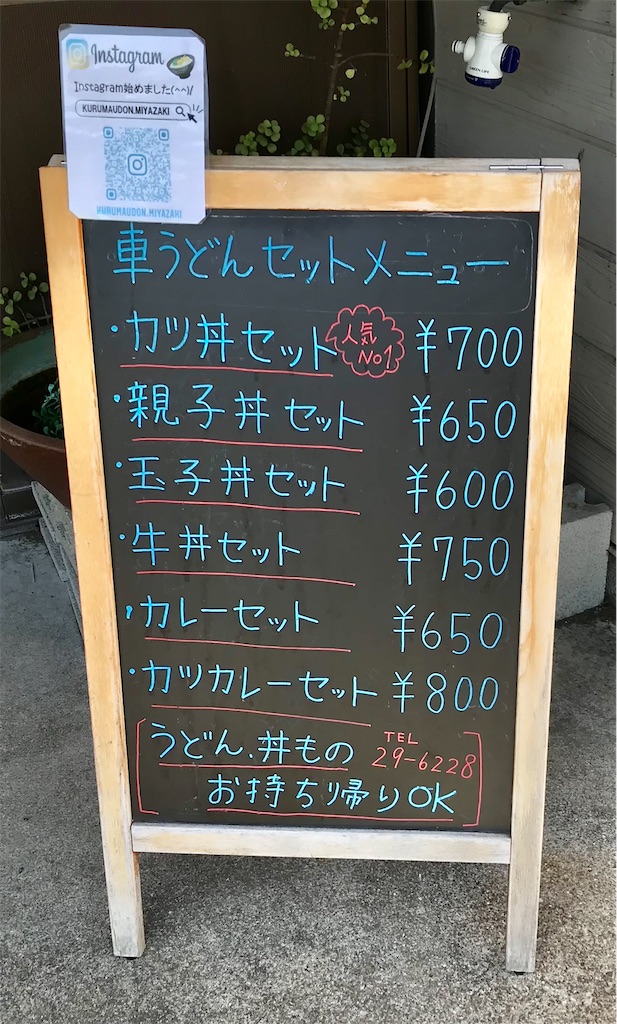 Instagram
Instagram始めました(^^)/
KURUMAUDON.MIYAZAKI
KURUMAUDON.MIYAZAKI
車うどんセットメニュー
・カツ丼セット 人気No1 ¥700
・親子丼セット ¥650
・玉子丼セット ¥600
・牛丼セット ¥750
・カレーセット ¥650
・カツカレーセット ¥800
うどん、丼もの TEL 29-6228
お持ち帰りOK